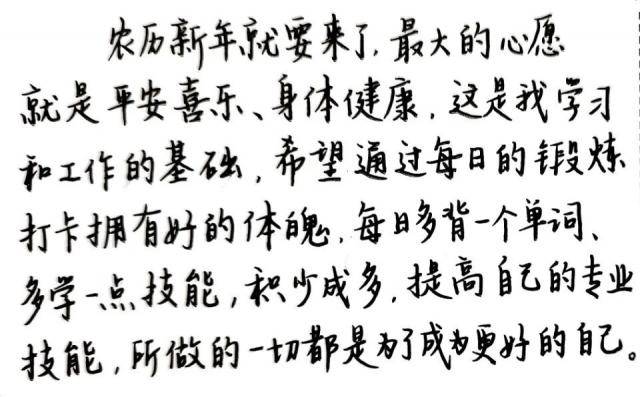 农历新年就要来了,最大的心愿
就是平安喜乐、身体健康,这是我学习
和工作的基础,希望通过每日的锻炼
打卡拥有好的体魄,每日多背一个单词、
多学一点技能,积少成多,提高自己的专业
技能,所做的一切都是为了成为更好的自己。